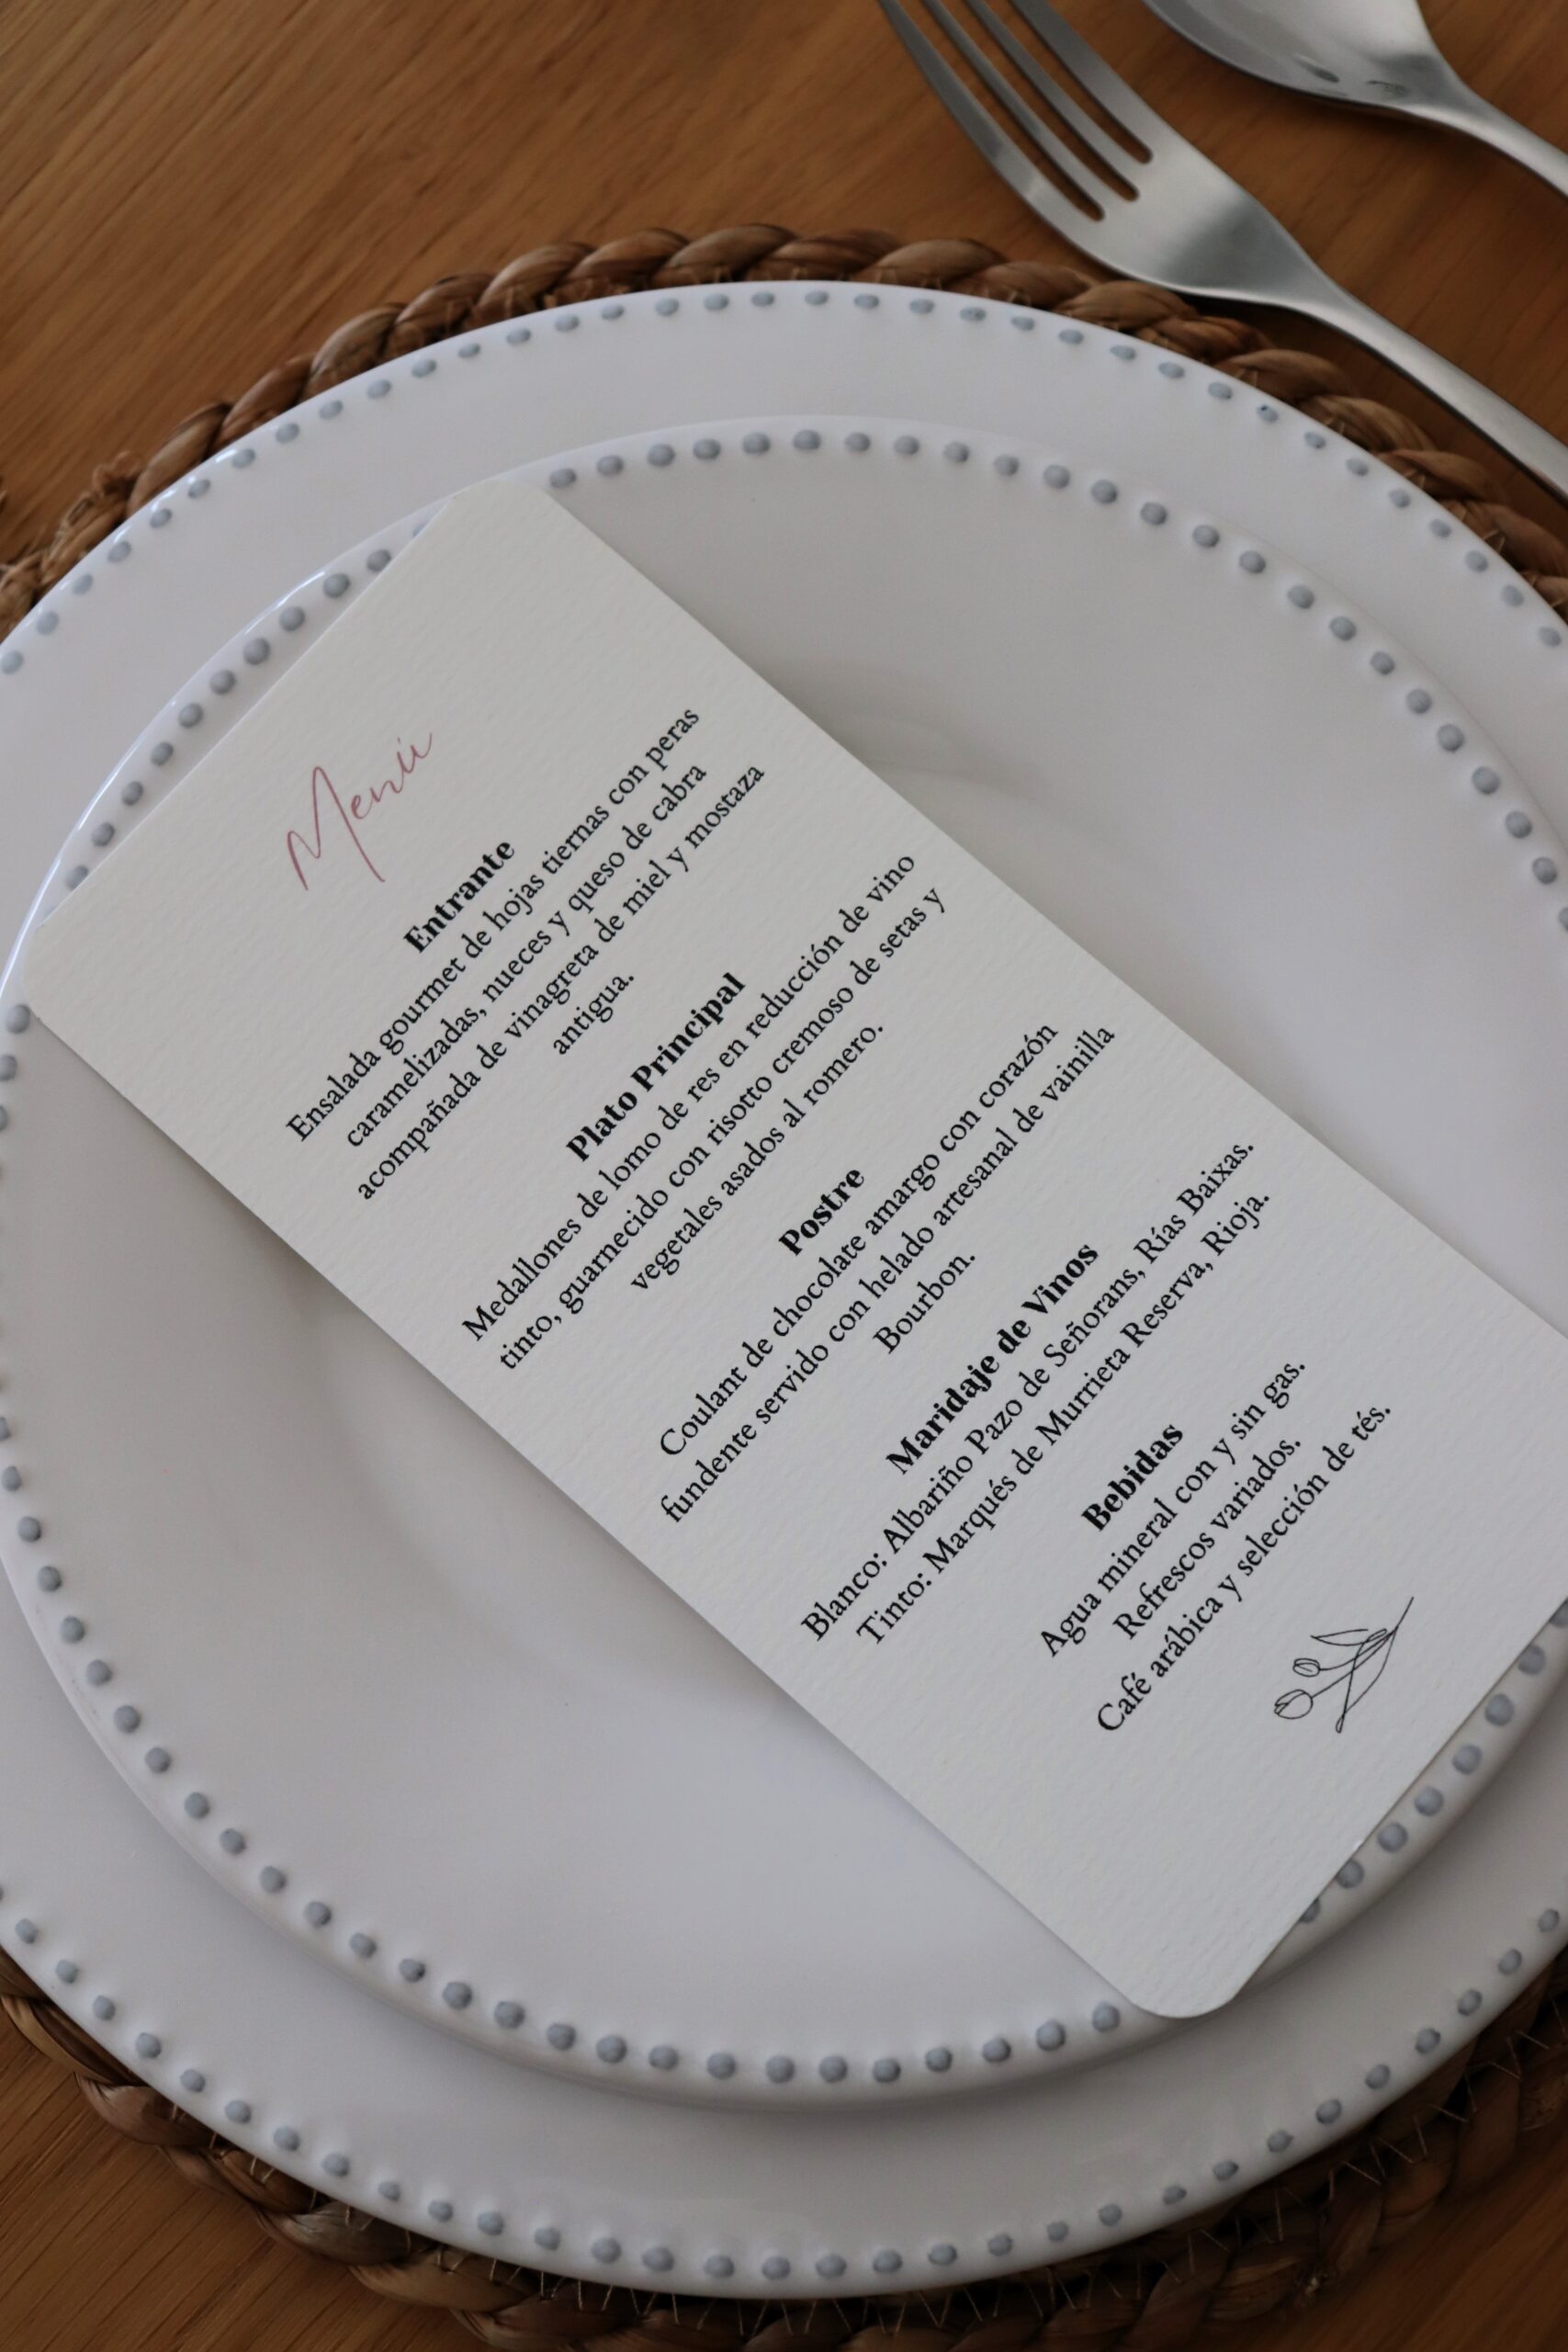 Menú
Entrante
Ensalada gourmet de hojas tiernas con peras
caramelizadas, nueces y queso de cabra
acompañada de vinagreta de miel y mostaza
antigua.
Plato Principal
Medallones de lomo de res en reducción de vino
tinto, guarnecido con risotto cremoso de setas y
vegetales asados al romero.
Postre
Coulant de chocolate amargo con corazón
fundente servido con helado artesanal de vainilla
Bourbon.
Maridaje de Vinos
Blanco: Albariño Pazo de Señorans, Rías Baixas.
Tinto: Marqués de Murrieta Reserva, Rioja.
Bebidas
Agua mineral con y sin gas.
Refrescos variados.
Café arábica y selección de tés.